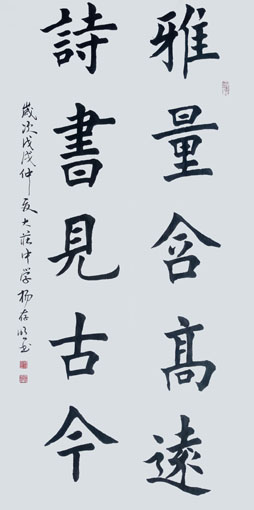 雅量含高遠
詩書見古今
歲次戊戌仲夏大莊中学楊存明書